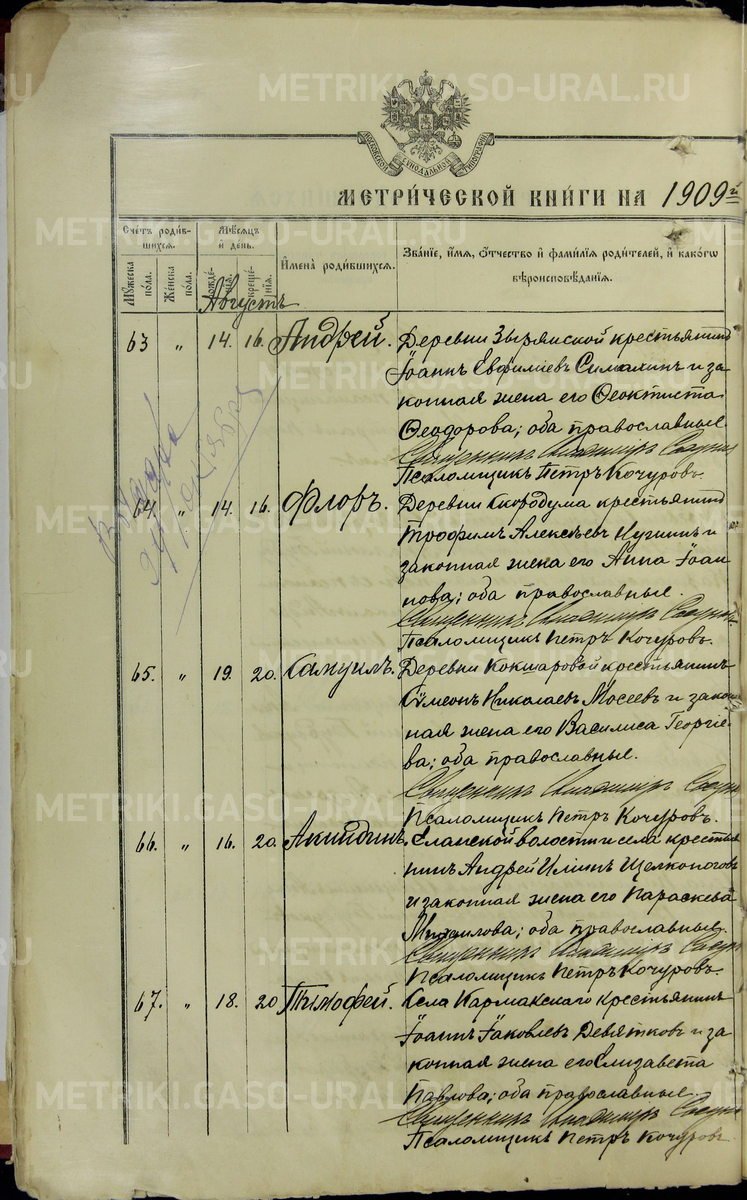 METRIKI.GASO-URAL.RU
МОСКОВСКОЙ СѴНОДАЛЬНОЙ ТИПОГРАФІИ
МЕТРИ́ЧЕСКОЙ КНИ́ГИ НА 1909 й
Сче́тъ роди́в-
шихся.
Мѣ́сяцъ
и҆ де́нь.
И҆мена̀ роди́вшихся.
Зва́ніе, и҆́мя, ѻ҆́тчество и҆ фами́лія роди́телей, и҆ како́гѡ
вѣроисповѣ́данія.
Му́жеска по́ла.
Же́нска по́ла.
рожде́нія.
креще́нія.
Августъ
63 " 14. 16. Андрей. Деревни Зырянской крестьянинъ
Іоаннъ Евфиміевъ Симахинъ и за
конная жена его Ѳеоктиста
Ѳеодорова; оба православные.
Священникъ Владиміръ
Псаломщикъ Петръ Кочуровъ.
64. " 14. 16. Флоръ. Деревни Скородума крестьянинъ
Трофимъ Алексѣевъ и
законная жена его Анна Іоан
нова; оба православные.
Священникъ Владиміръ
Псаломщикъ Петръ Кочуровъ.
65. " 19. 20. Самуилъ. Деревни Кокшаровой крестьянинъ
Сѵмеонъ Николаевъ Мосеевъ и закон
ная жена его Василиса Георгіе
ва; оба православные.
Священникъ Владиміръ
Псаломщикъ Петръ Кочуровъ.
66. " 16. 20. Акиндинъ. Еланской волости и села крестья
нинъ Андрей Илiинъ Щелконоговъ
и законная жена его Параскева
Михаилова; оба православные.
Священникъ Владиміръ
Псаломщикъ Петръ Кочуровъ.
67. " 18. 20 Тимофей. Села Кармакскаго крестьянинъ
Іоаннъ Іаковлевъ Девятковъ и за
конная жена его Елизавета
Павлова; оба православные.
Священникъ Владиміръ
Псаломщикъ Петръ Кочуровъ